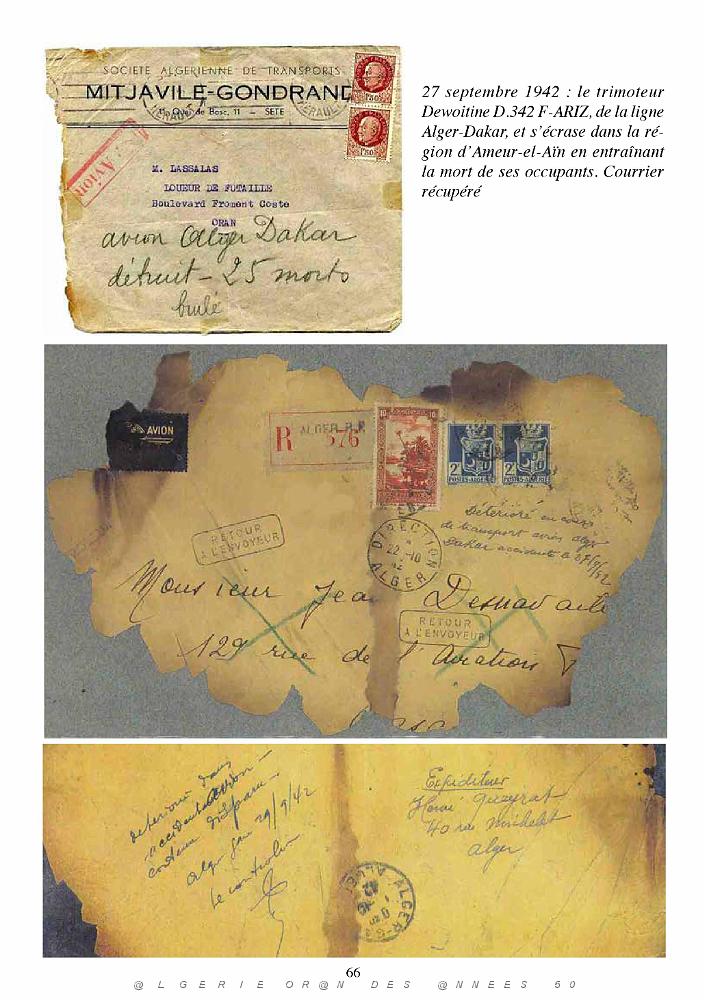 SOCIETE ALGERIENNE DE TRANSPORTS
MITJAVILE-GONDRAND
Quai de Bosc, 11 – SETE
HERAULT
HERAULT
1F50
1F50
AVION
M. LASSALAS
LOUEUR DE FUTAILLE
Boulevard Froment Coste
ORAN
avion Alger Dakar
détruit - 25 morts
brulé
27 septembre 1942 : le trimoteur
Dewoitine D.342 F-ARIZ, de la ligne
Alger-Dakar, et s'écrase dans la ré-
gion d'Ameur-el-Aïn en entraînant
la mort de ses occupants. Courrier
récupéré
AVION
R ALGER R.P.
576
10 10
2F 2F
POSTES-ALGERIE POSTES-ALGERIE
Détérioré en cours
de transport avion Alger
Dakar accidenté le 27/9/42
RETOUR
A L'ENVOYEUR
DIRECTION
22-10
42
ALGER
Monsieur Jean
RETOUR
A L'ENVOYEUR
129 rue de l'Aviation
détérioré dans
accident avion -
contenu disparu -
Alger gare 29/9/42
le contrôleur
Expéditeur
40 rue Michelet
Alger
ALGER
66
@ L G E R I E O R @ N D E S @ N N E E S 5 0